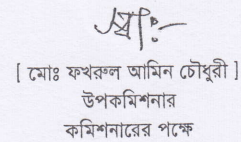 স্বা:-
[ মোঃ ফখরুল আমিন চৌধুরী ]
উপকমিশনার
কমিশনারের পক্ষে